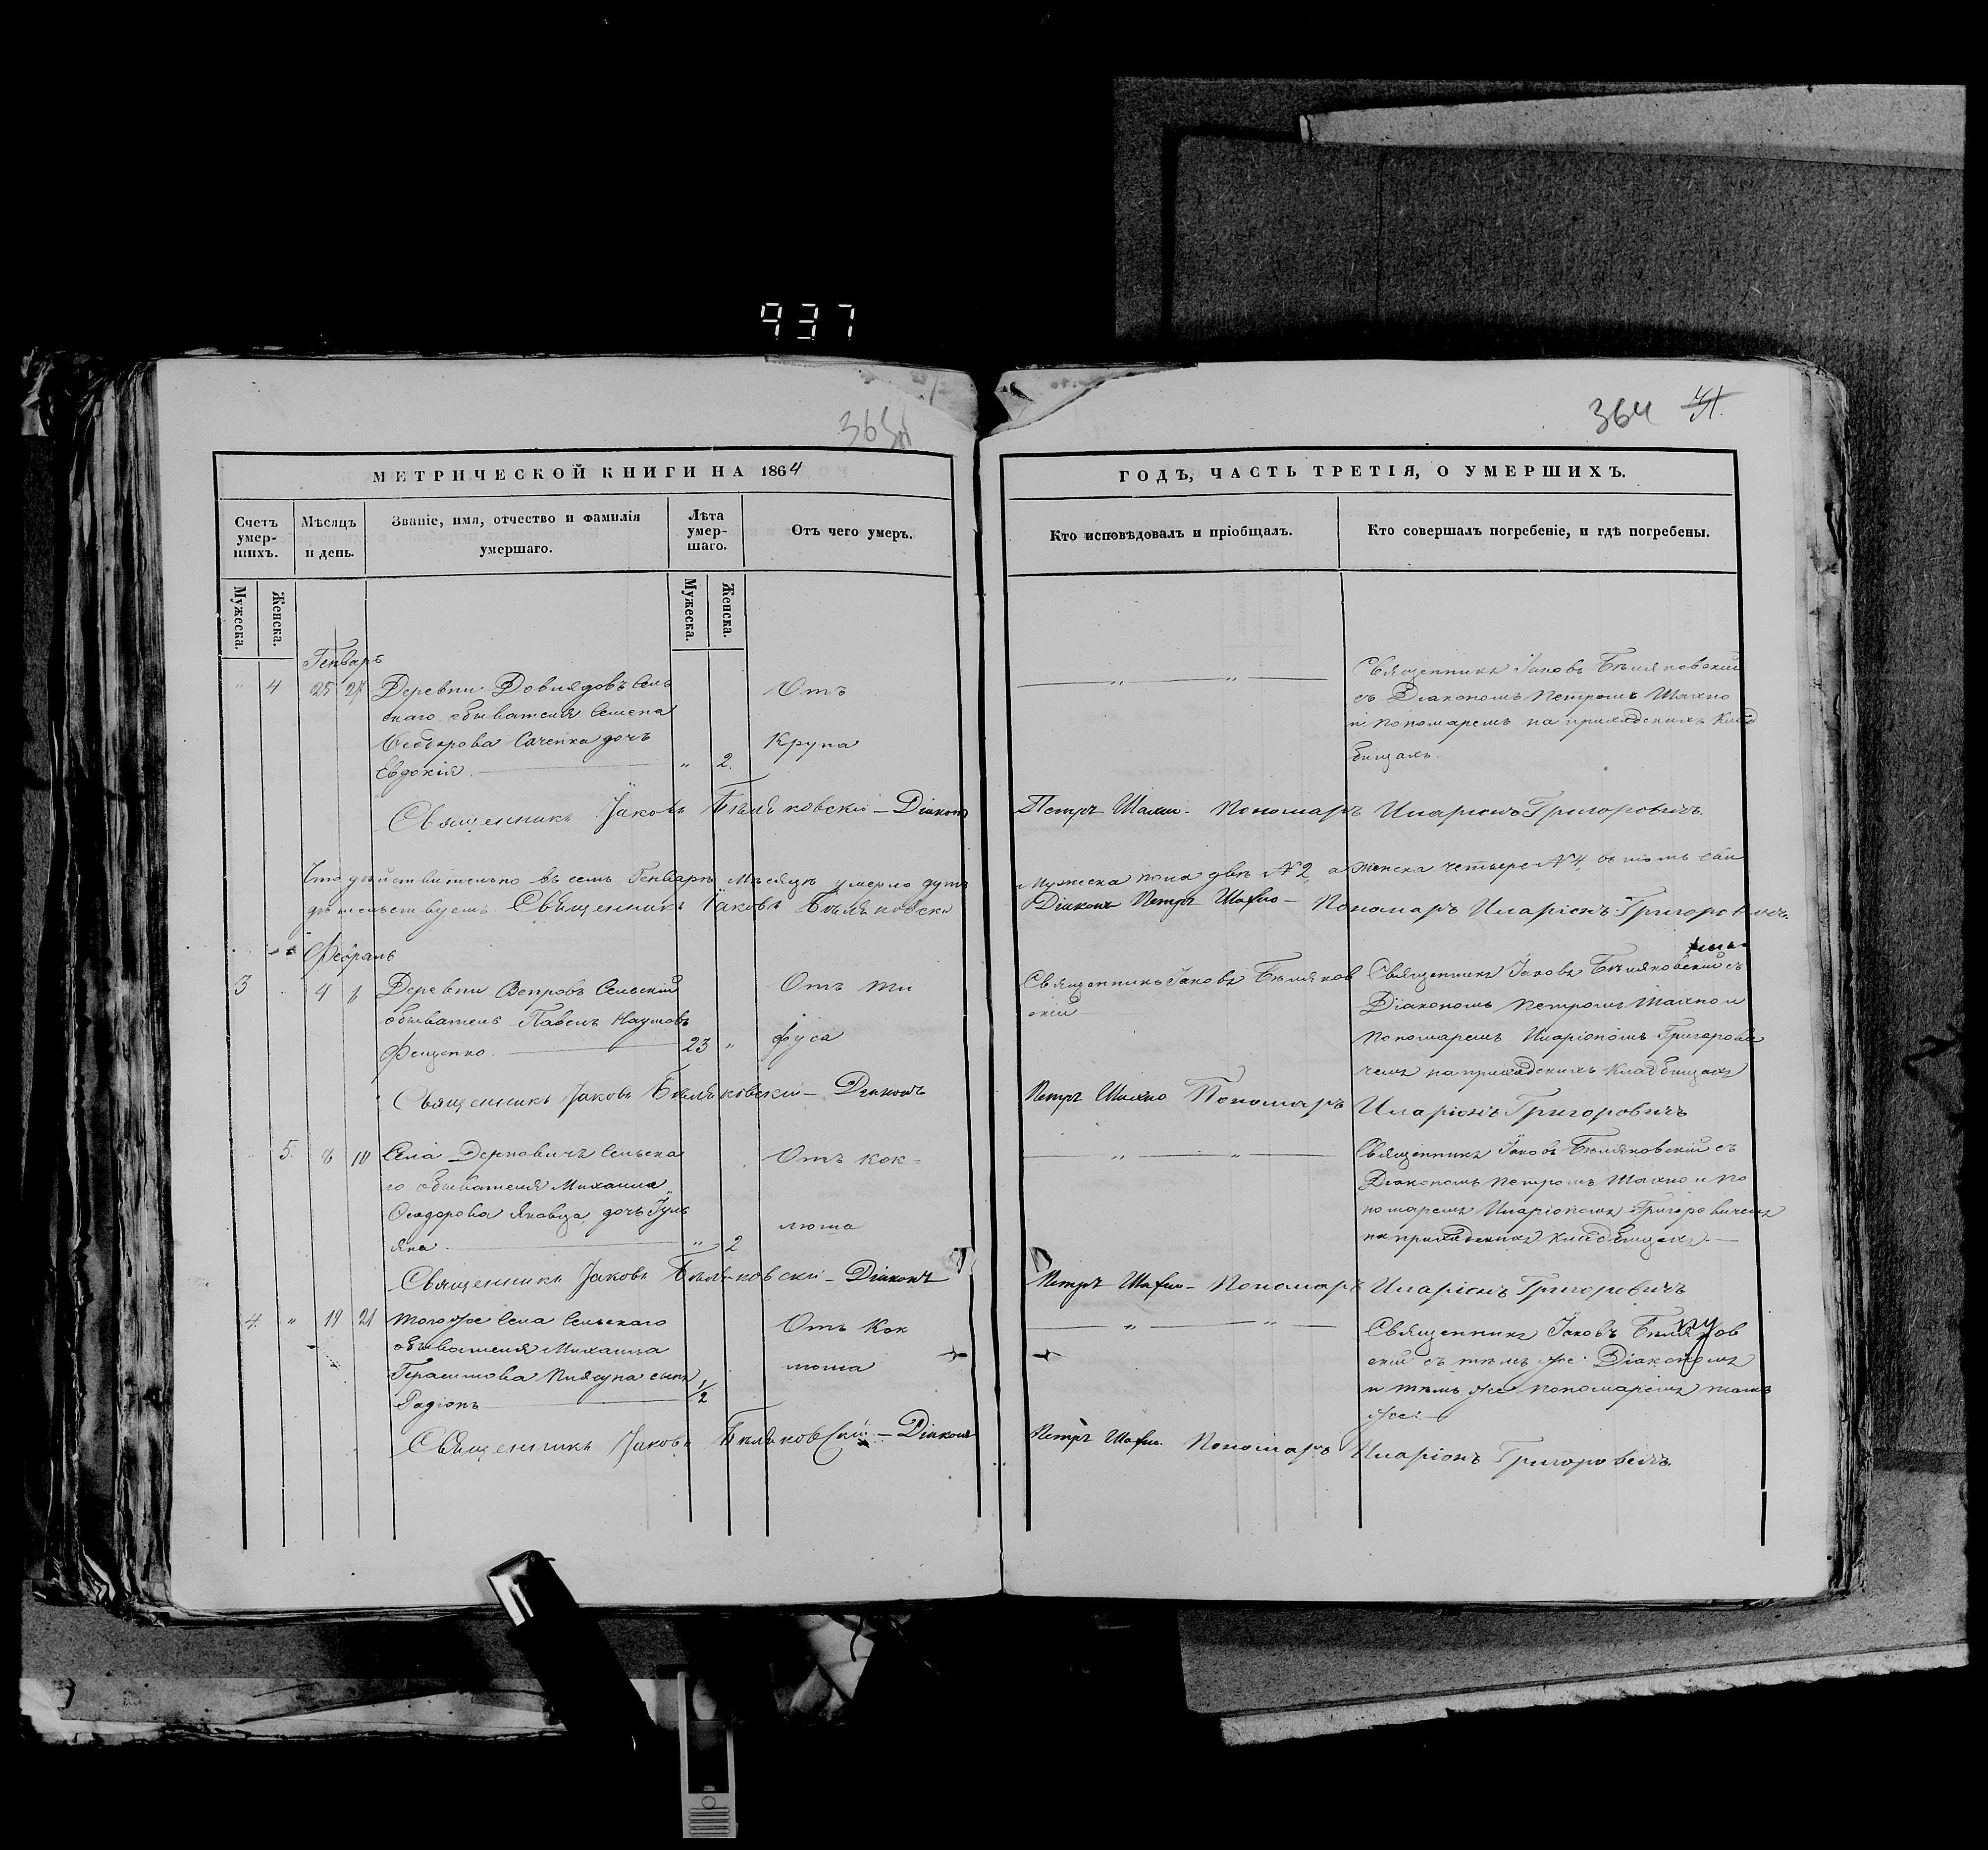 937
364
МЕТРИЧЕСКОЙ КНИГИ НА 1864
ГОДЪ, ЧАСТЬ ТРЕТІЯ, О УМЕРШИХЪ.
Счетъ умер-шихъ.
Мѣсяцъ и день.
Званіе, имя, отчество и фамилія умершаго.
Лѣта умер-шаго.
Отъ чего умеръ.
Кто исповѣдовалъ и пріобщалъ.
Кто совершалъ погребеніе, и гдѣ погребены.
Мужеска.
Женска.
Мужеска.
Женска.
Генваря
" 4 25 27 Деревни Довядовъ Сель
скаго обывателя Семена
Ѳеодорова Саченка дочь
Евдокія. " 2.
Отъ
Крупа
" "
Священникъ Іаковъ Бѣляковскій
съ Діакономъ Петромъ Шахно
и Пономаремъ на приходскихъ клад
бищахъ.
Священникъ Іаковъ Бѣляковскій – Діаконъ Петръ Шахно. Пономарь Иларіонъ Григоровичъ.
Что дѣйствительно въ семъ Генварѣ мѣсяцѣ умерло душъ мужеска пола двѣ №2, а женска четыре №4, въ томъ сви
дѣтельствуемъ Священникъ Іаковъ Бѣляковскі Діаконъ Петръ Шахно – Пономарь Иларіонъ Григоровичъ.
Февраль
3 4 6 Деревни Вепровъ Сельскій
обыватель Павелъ Наумовъ
Фещенко. 23 "
Отъ ти
фуса
Священникъ Іаковъ Бѣляков
скій
Священникъ Іаковъ Бѣляковскій съ
Діакономъ Петромъ Шахно и
Пономаремъ Иларіономъ Григорови
чемъ на приходскихъ кладбищахъ
Священникъ Іаковъ Бѣляковскій – Діаконъ Петръ Шахно Пономарь Иларіонъ Григоровичъ
5. 8 10 Села Дерновичъ Сельска
го обывателя Михаила
Ѳеодорова Яковца, дочь Іуль
яна " 2
Отъ кок-
люша
" "
Священникъ Іаковъ Бѣляковскій съ
Діакономъ Петромъ Шахно и По
номаремъ Иларіономъ Григоровичемъ
на приходскихъ кладбищахъ. —
Священникъ Іаковъ Бѣляковскій – Діаконъ Петръ Шахно – Пономарь Иларіонъ Григоровичъ
4. " 19 21 Того же Села Сельскаго
обывателя Михаила
Герасимова сынъ
Радіонъ 1/2
Отъ Кок
люша
" "
Священникъ Іаковъ Бѣляков
скій съ тѣмъ же Діакономъ
и тѣмъ же пономаремъ тамъ
же. —
Священникъ Іаковъ Бѣляковскій – Діаконъ Петръ Шахно. Пономарь Иларіонъ Григоровичъ.